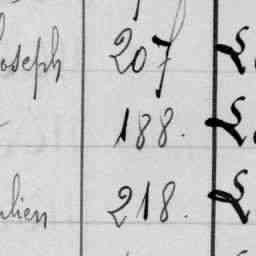 oseph 207
188.
ulien 218.